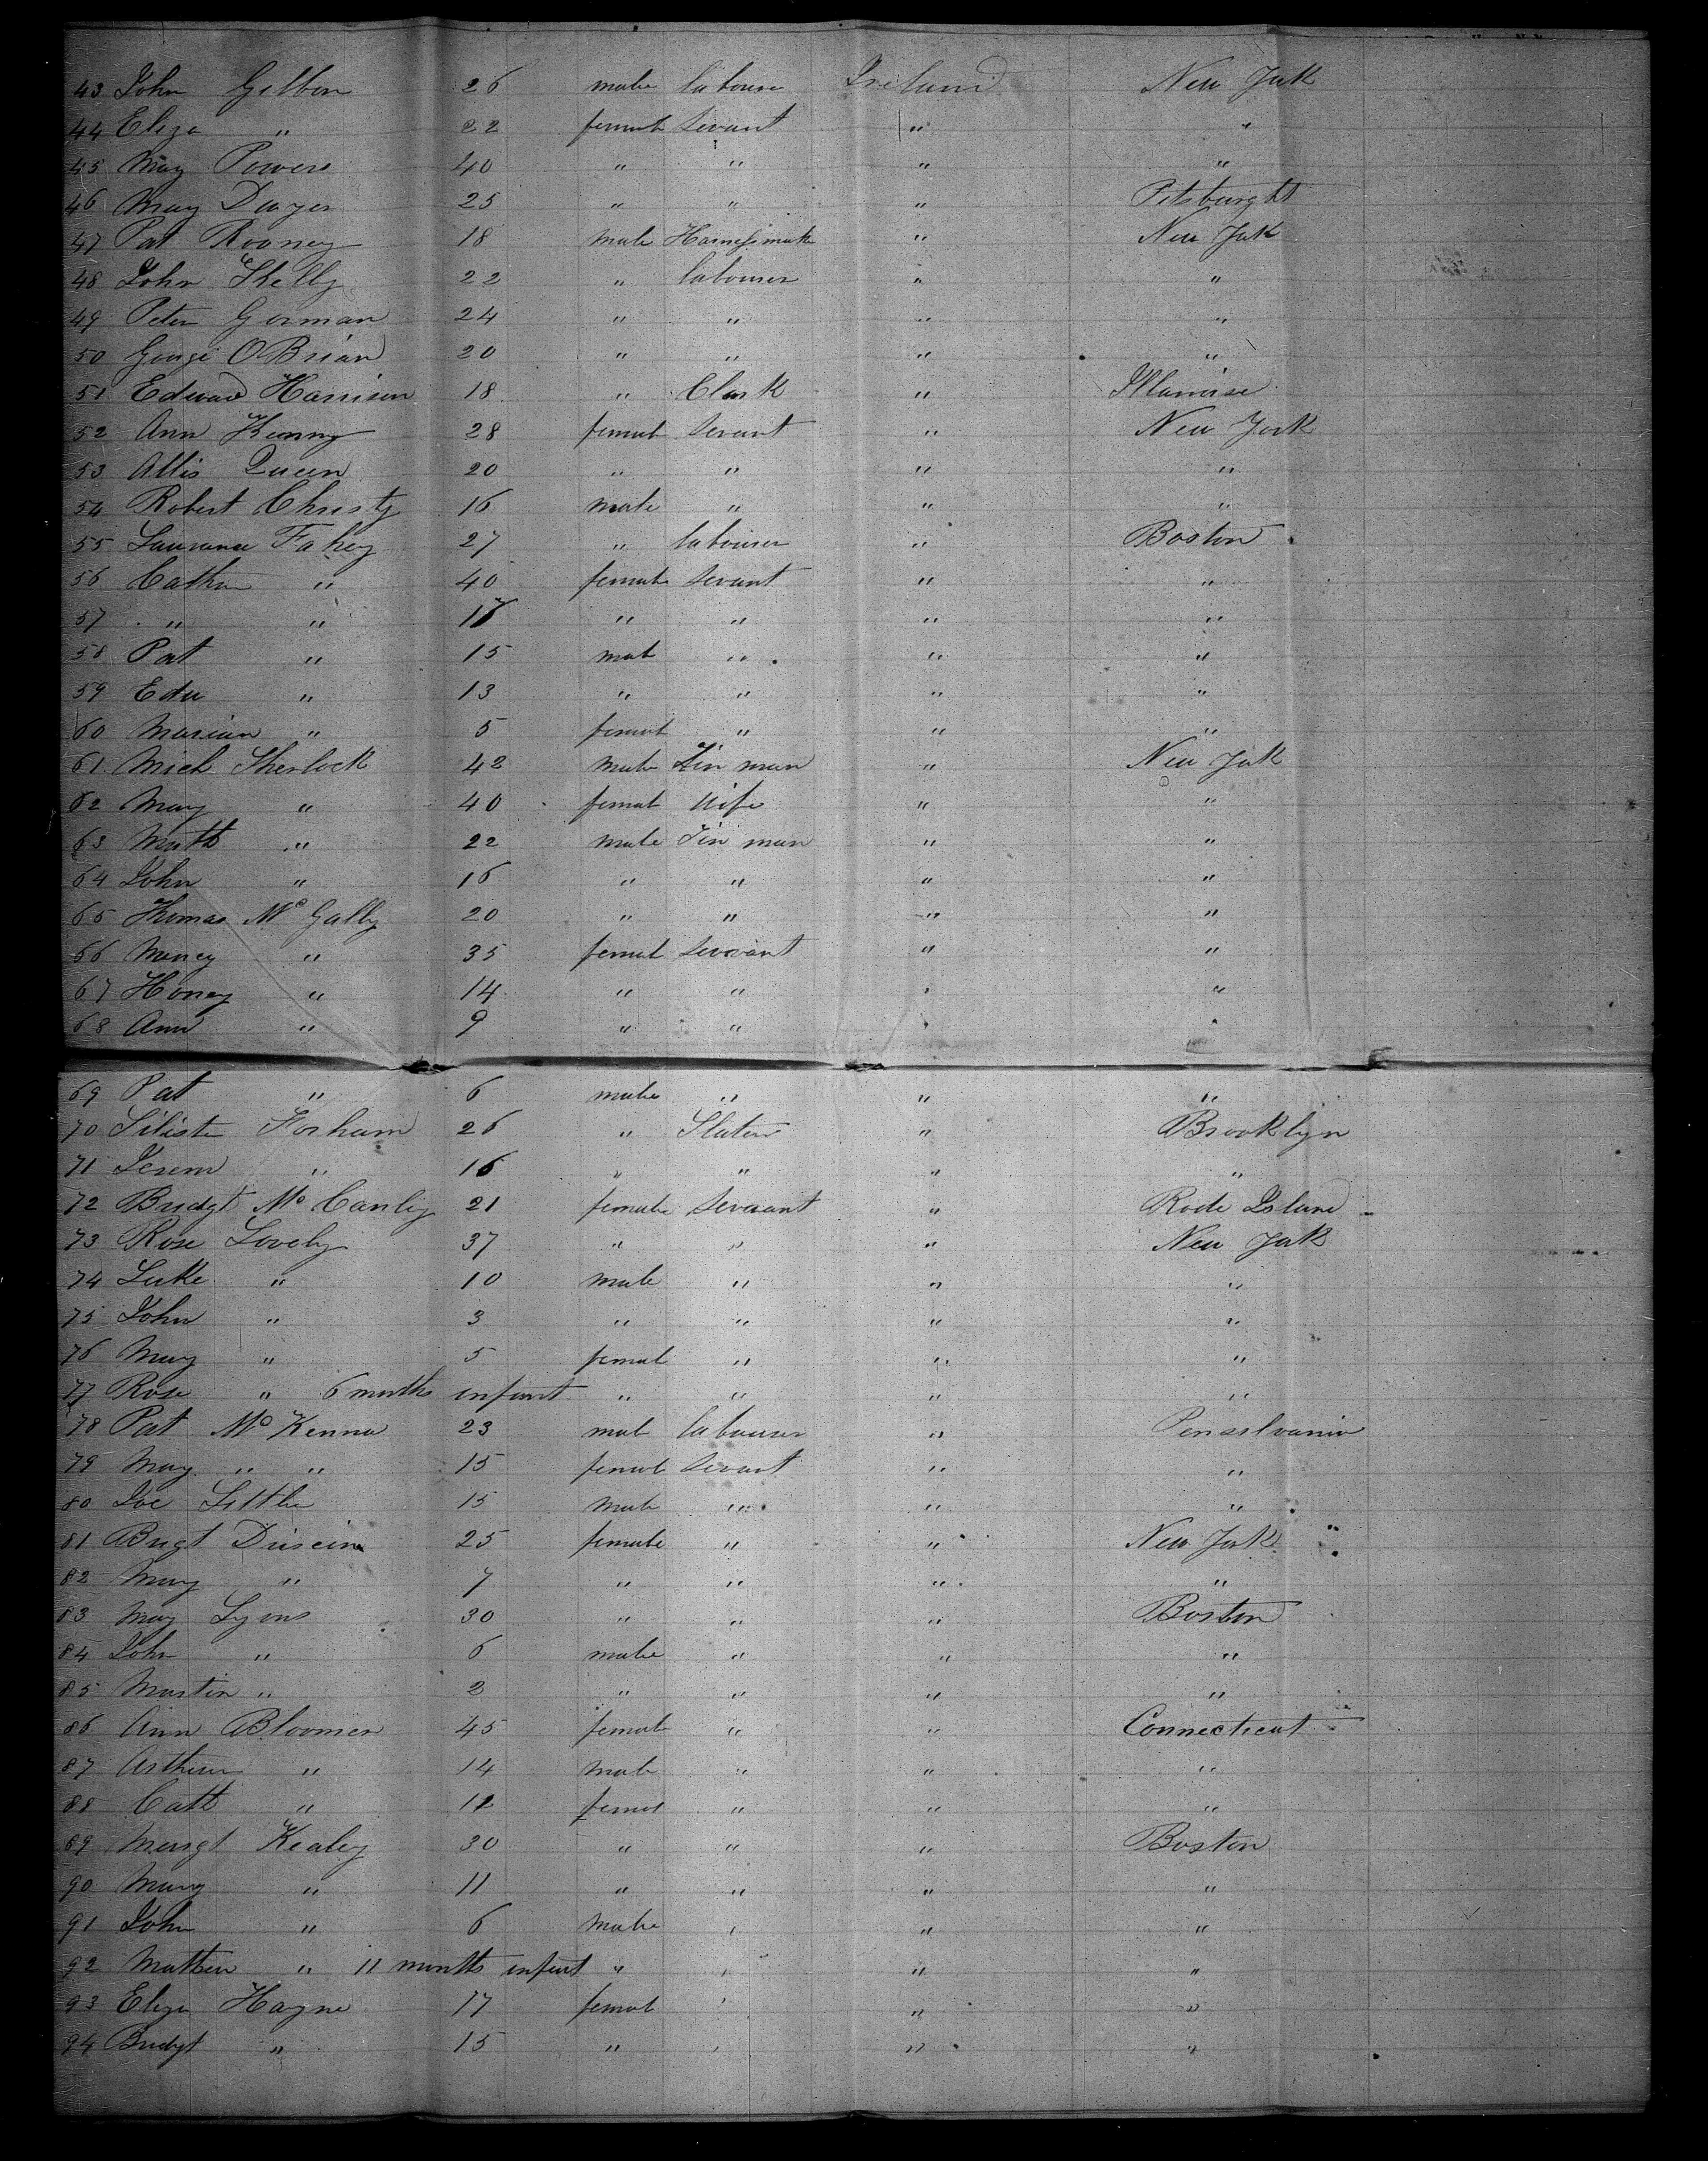 43 John Gilbon 26 male labourer Ireland New York
44 Eliza " 22 female Sevant " "
45 May Powers 40 " " " "
46 May Dwyer 25 " " " Pitsburght
47 Pat Rooney 18 male Harnessmak " New York
48 John Skelly 22 " labourer " "
49 Peter Gorman 24 " " " "
50 George OBrian 20 " " " "
51 Edward Harrison 18 " Clark " Illanoise
52 Ann Kenny 28 female Sevant " New York
53 Allis Queen 20 " " " "
54 Robert Christy 16 male " " "
55 Laurance Fahey 27 " labourer " Boston
56 Cathn " 40 female Sevant " "
57 " " 17 " " " "
58 Pat " 15 male " " "
59 Edw " 13 " " " "
60 Marian " 5 female " " "
61 Mich Sherlock 42 male Tin man " New York
62 May " 40 female Wife " "
63 Matt " 22 male Tin man " "
64 John " 16 " " " "
65 Thomas Mc Gally 20 " " " "
66 Nancy " 35 female Servant " "
67 Honey " 14 " " " "
68 Ann " 9 " " " "
69 Pat " 6 male " " "
70 Silister Forham 26 " Slater " Brooklyn
71 Jerem " 16 " " " "
72 Bridgt Mc Canly 21 female Servant " Rode Island
73 Rose Lovely 37 " " " New York
74 Luke " 10 male " " "
75 John " 3 " " " "
76 Mary " 5 female " " "
77 Rose " 6 months infant " " " "
78 Pat Mc Kenna 23 male labourer " Pensslvania
79 May " " 15 female Sevant " "
80 Joe Little 15 male " " "
81 Brigt 25 female " " New York
82 Mary " 7 " " " "
83 May Lyons 30 " " " Boston
84 John " 6 male " " "
85 Martin " 2 " " " "
86 Ann Bloomer 45 female " " Connecticut
87 Arthur " 14 male " " "
88 Catt " 12 female " " "
89 Margt Kealey 30 " " " Boston
90 Mary " 11 " " " "
91 John " 6 male " " "
92 Mathew " 11 months infant " " " "
93 Eliza Hayne 17 female " " "
94 Bridgt " 15 " " " "